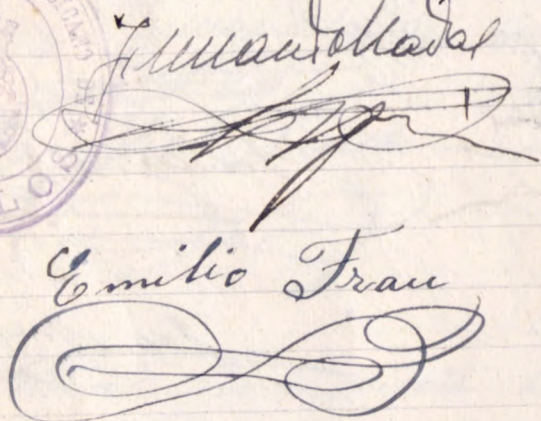 Fernando Nadal
Emilio Frau